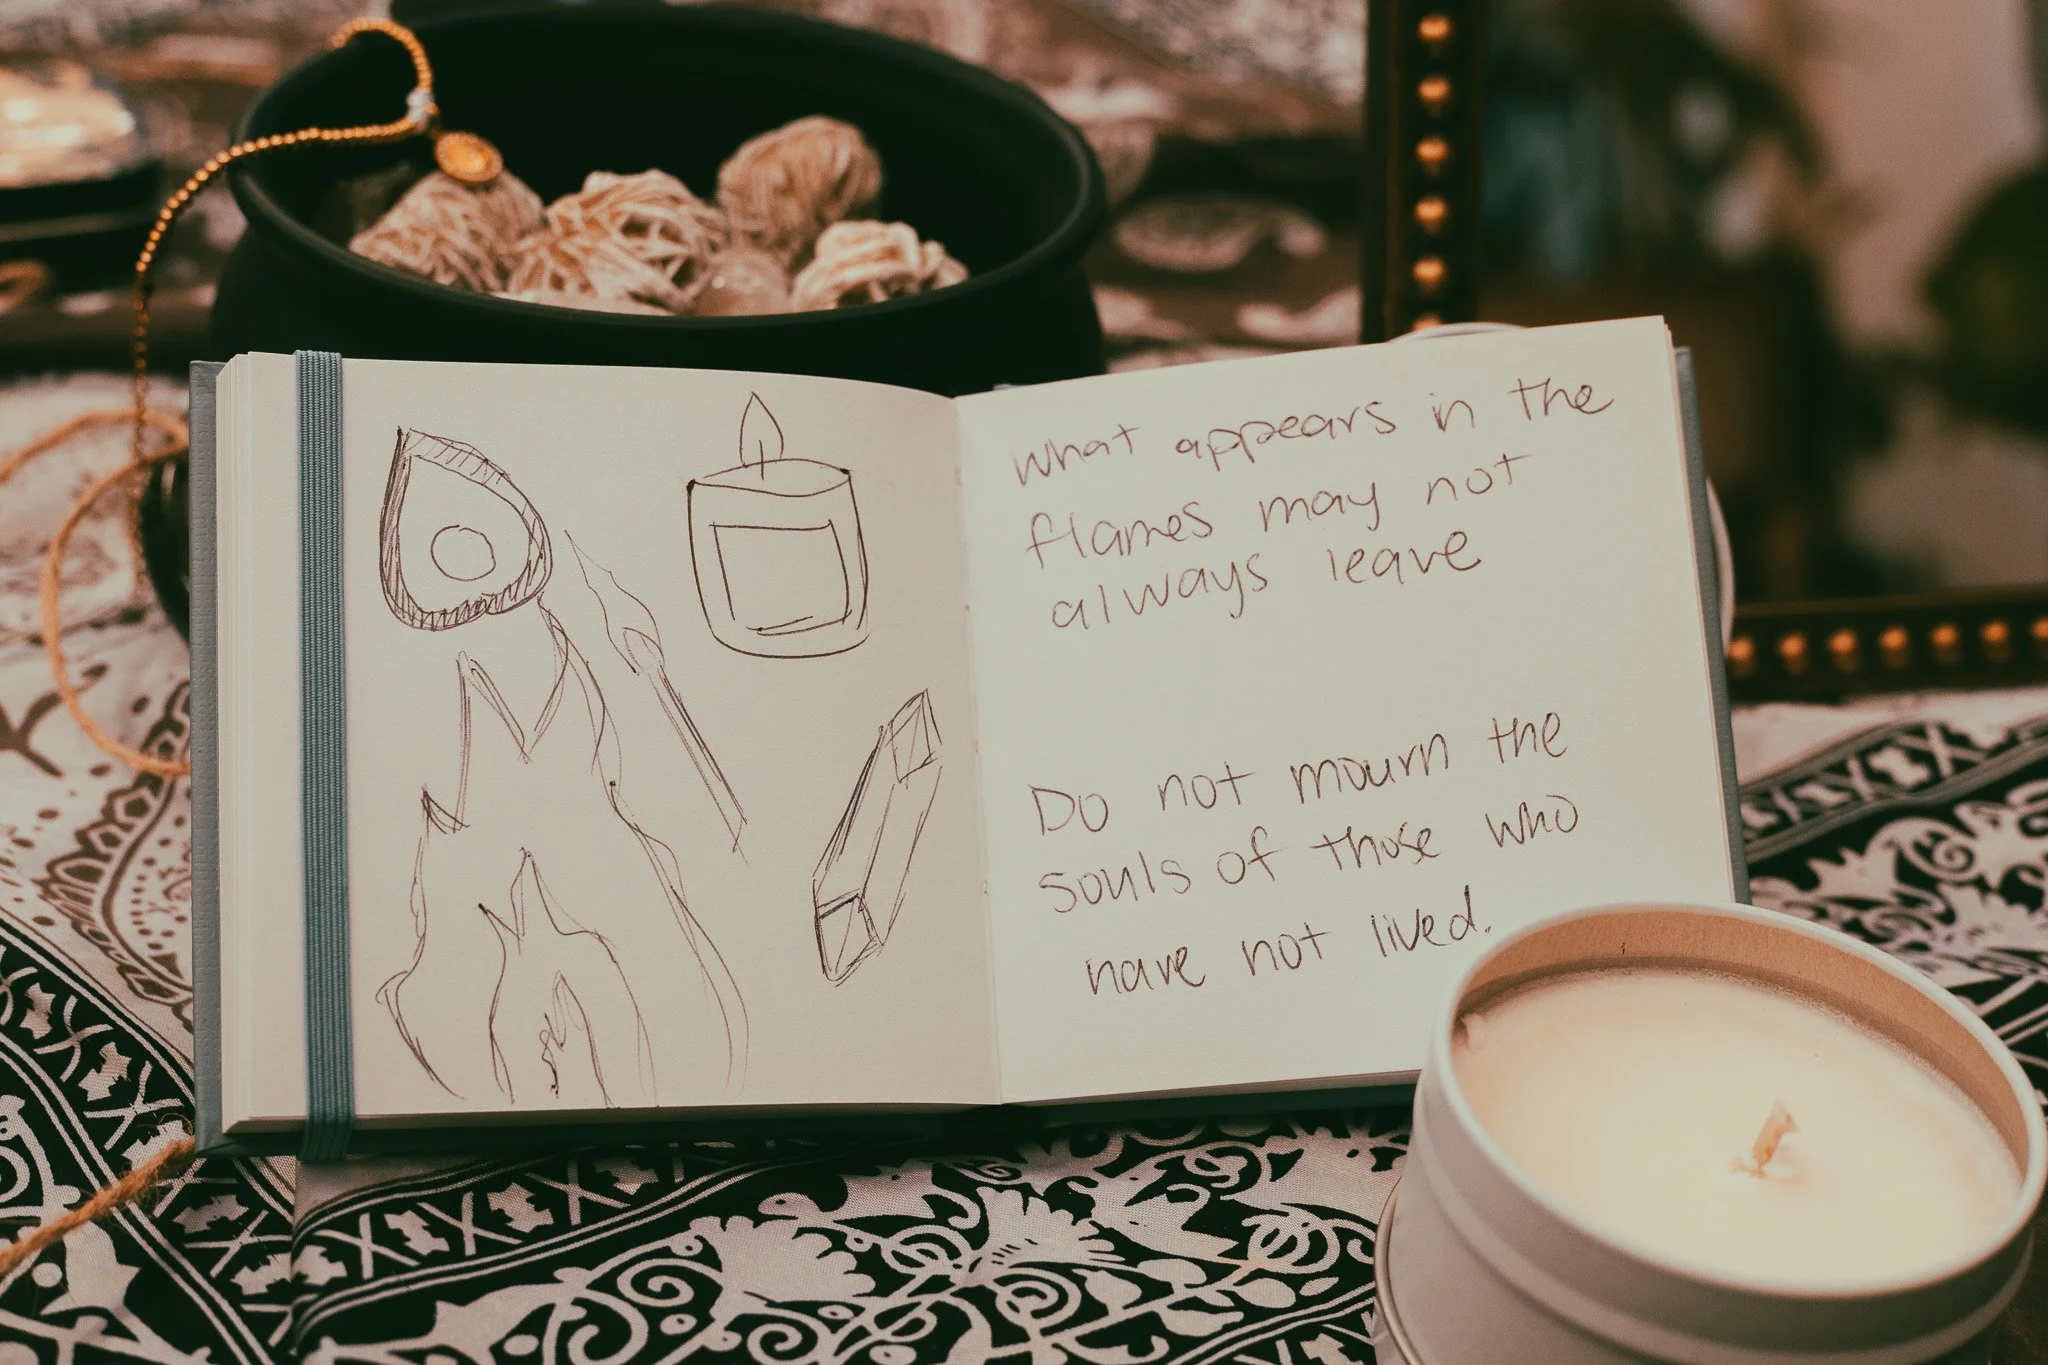 What appears in the
flames may not
always leave
Do not mourn the
souls of those who
have not lived.